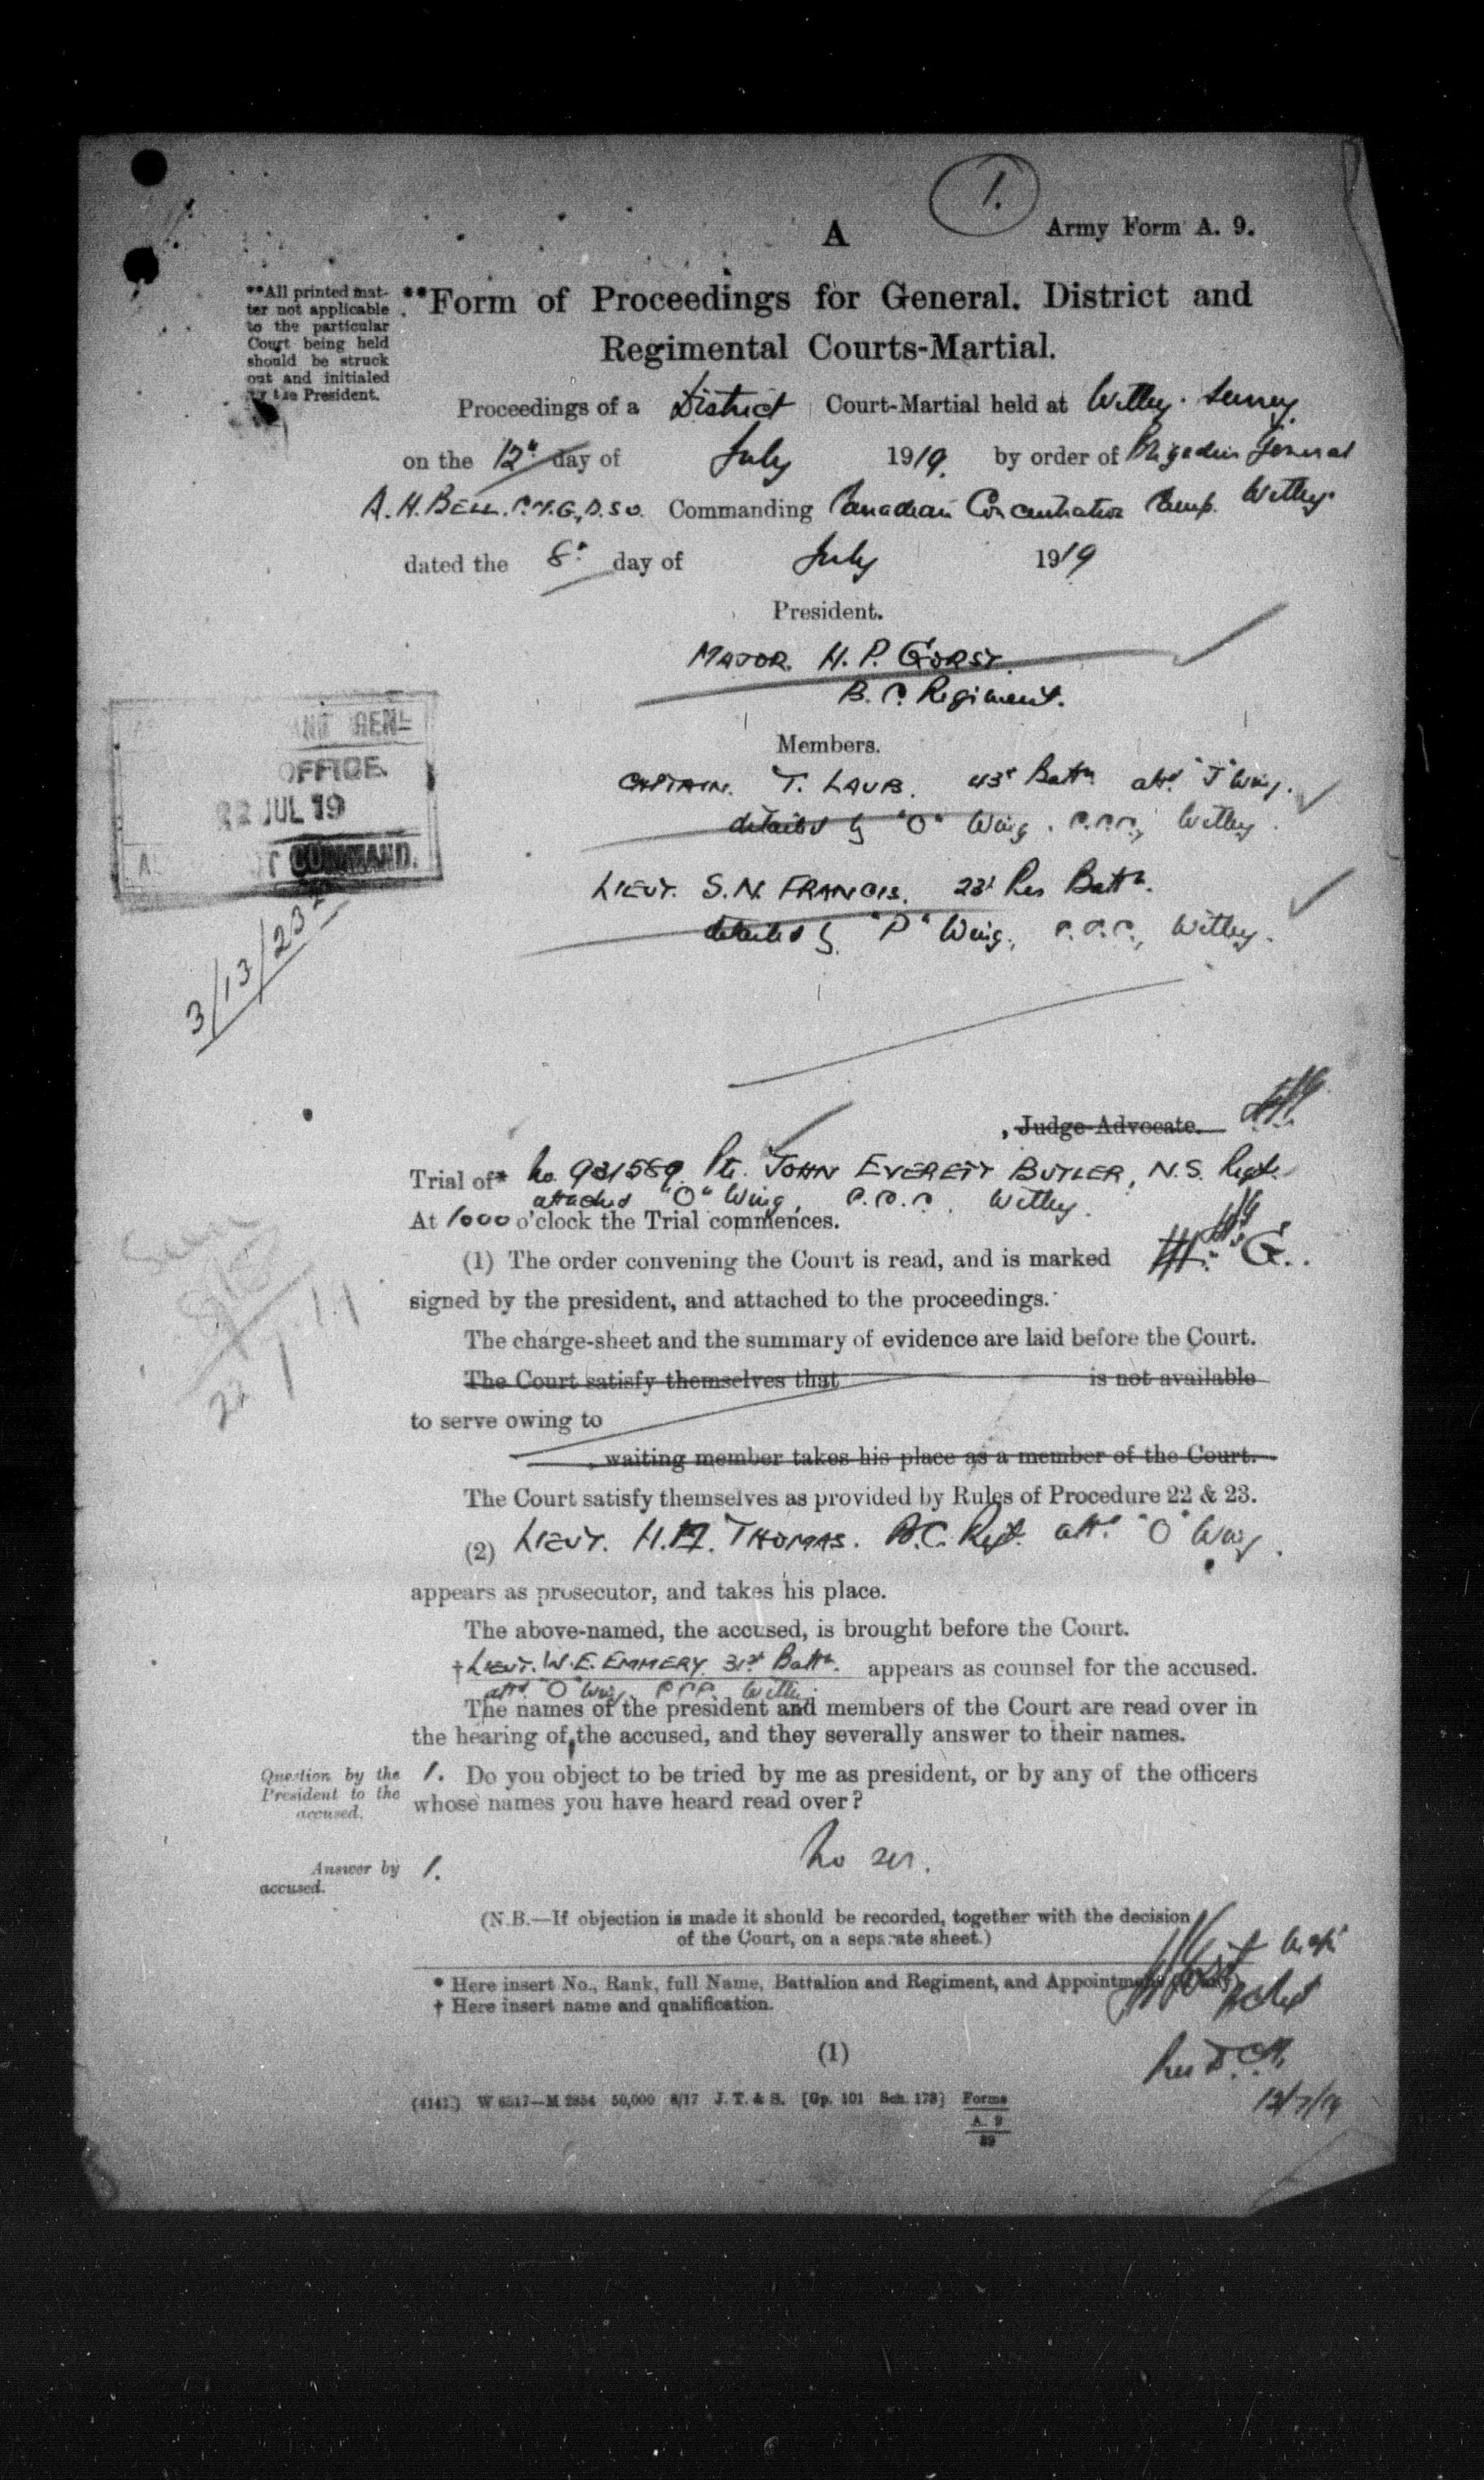 1.
A
Army Form A. 9.
**All printed mat-
ter not applicable
to the particular
Court being held
should be struck
out and initialed
by the President.
**Form of Proceedings for General, District and
Regimental Courts-Martial.
Proceedings of a District Court-Martial held at Witley. Surrey.
on the 12th day of July 1919. by order of Brigadier General
A. H. BELL. C.M.G., D.S.O. Commanding Canadian Concentration Camp. Witley.
dated the 8th day of July 1919
President.
MAJOR. H. P. GORST.
B. C. Regiment.
Members.
CAPTAIN. T. LAUB. 43rd Battn attd "J" Wing.
detailed by "O" Wing. C.C.C., Witley.
LIEUT. S. N. FRANCIS. 23rd Res Battn.
detailed by "P" Wing., C.C.C., Witley.
OFFICE.
22 JUL 19
COMMAND.
3/13/23
Judge-Advocate.
Trial of* No. 931589. Pte. JOHN EVERETT BUTLER, N.S. Regt.
attached "O" Wing, C.C.C. Witley.
At 1000 o'clock the Trial commences.
(1) The order convening the Court is read, and is marked G..
signed by the president, and attached to the proceedings.
The charge-sheet and the summary of evidence are laid before the Court.
The Court satisfy themselves that is not available
to serve owing to
waiting member takes his place as a member of the Court.
The Court satisfy themselves as provided by Rules of Procedure 22 & 23.
(2) LIEUT. H. M. THOMAS. B.C. Regt. attd "O" Wing.
appears as prosecutor, and takes his place.
The above-named, the accused, is brought before the Court.
†LIEUT. W. E. EMMERY. 31st Battn. appears as counsel for the accused.
attd "O" Wing C.C.C. Witley.
The names of the president and members of the Court are read over in
the hearing of the accused, and they severally answer to their names.
Question by the
President to the
accused.
1. Do you object to be tried by me as president, or by any of the officers
whose names you have heard read over?
Answer by
accused.
1. No sir.
(N.B.—If objection is made it should be recorded, together with the decision
of the Court, on a separate sheet.)
* Here insert No., Rank, full Name, Battalion and Regiment, and Appointment
† Here insert name and qualification.
(1)
12/7/19
W 6517—M 2854 50,000 8/17 J. T. & S. [Gp. 101 Sch. 173] Forms
A. 9